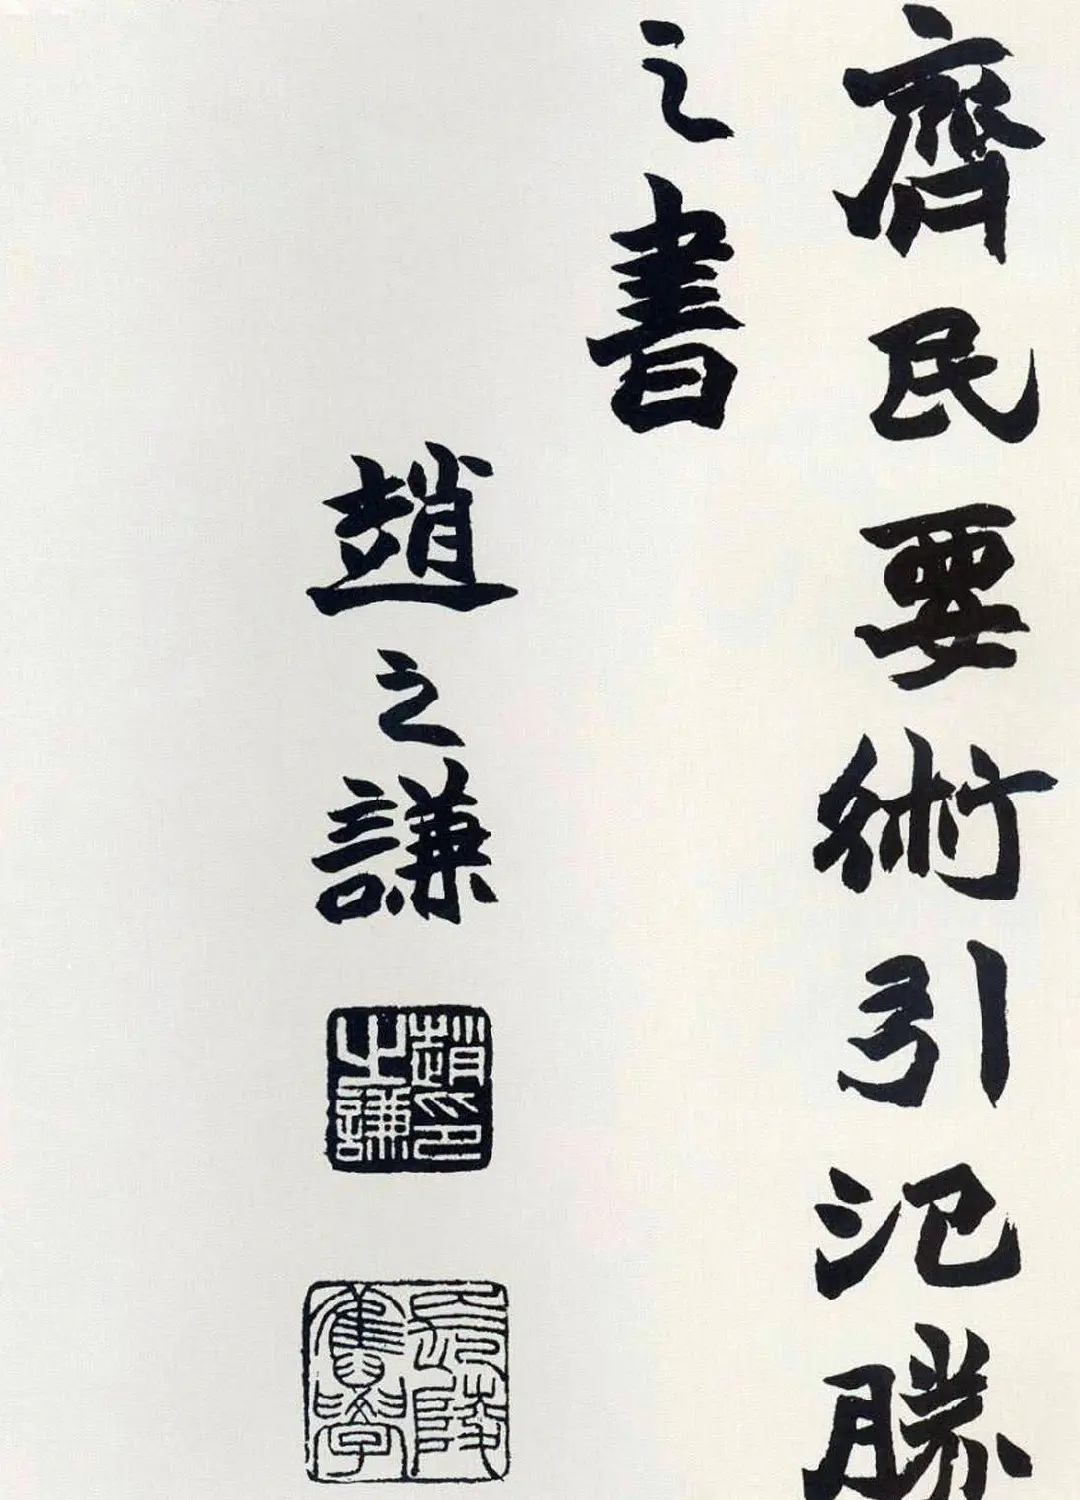 齊民要術引氾勝
之書
趙之謙
趙之謙印